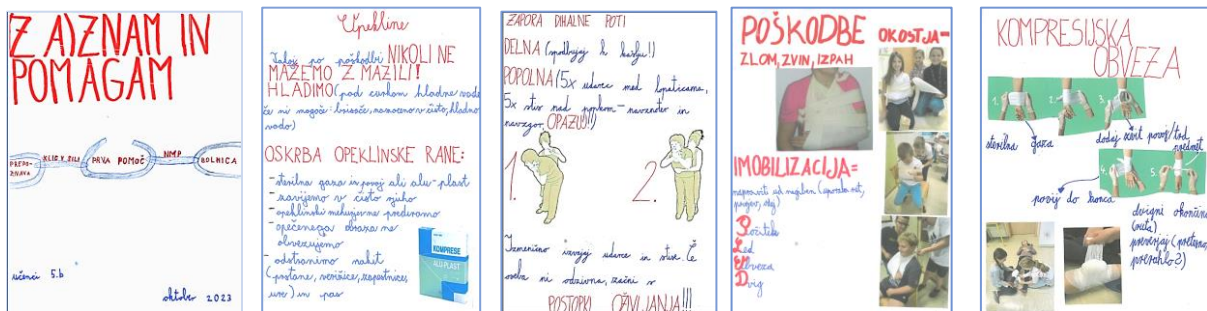 Z A)ZNAM IN
POMAGAM
PREPO-
ZNAVA
KLIC V SILI
PRVA POMOČ
NMP
BOLNICA
učenci 5.b
oktober 2023
Opekline
Takoj po poškodbi NIKOLI NE
MAŽEMO Z MAZILI!
HLADIMO (pod curkom hladne vode
če ni mogoče: brisače, namočeno v čisto, hladno
vodo)
OSKRBA OPEKLINSKE RANE:
- sterilna gaza in povoj ali alu-plast
- zavijemo v čisto rjuho
- opeklinski mehurjev ne prediramo
- opečenega obraza ne
obvezujemo
- odstranimo nakit
(prstane, verižice, zapestnice,
uro) in pas
KOMPRESE
ALU-PLAST
ZAPORA DIHALNE POTI
DELNA (spodbujaj k kašlju!)
POPOLNA (5x udarec med lopaticama,
5x stis nad popkom - navznoter in
navzgor, OPAZUJ!!)
1.
2.
Izmenično izvajaj udarce in stise. Če
oseba ni odzivna, začni s
POSTOPKI OŽIVLJANJA!!!
POŠKODBE OKOSTJA=
ZLOM, ZVIN, IZPAH
IMOBILIZACIJA=
napraviti ud negiben (uporaba rut,
povojev, )
Počitek
Led
Obveza
Dvig
KOMPRESIJSKA
OBVEZA
1.
2.
3.
sterilna gaza
dodaj zvit povoj/trd
predmet
4.
5.
povij do konca
dvigni okončino
(ruta)
preverjaj (pretesno,
prerahlo?)